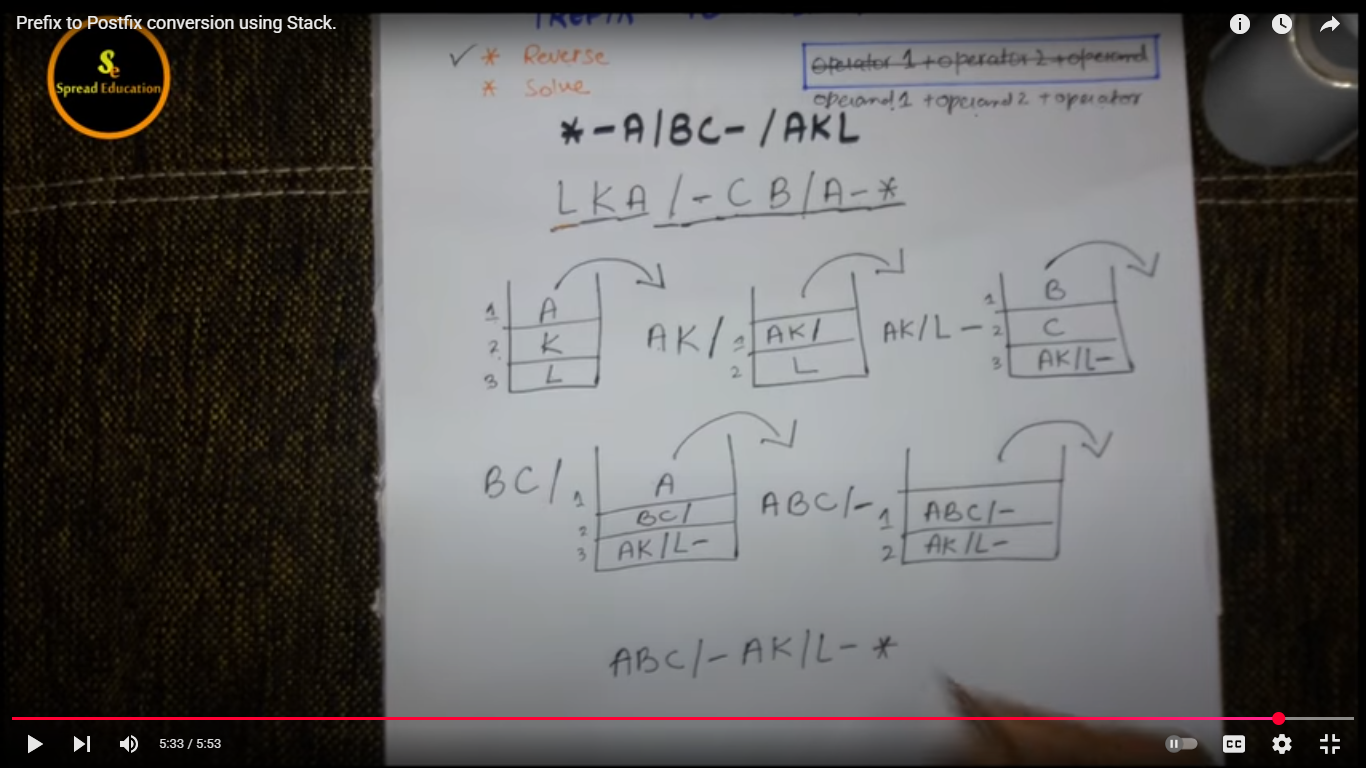 Prefix to Postfix conversion using Stack.
Se
Spread Education
✓ * Reverse
* Solve
operator 1 + operator 2 + operand
operand 1 + operand 2 + operator
*-A/BC-/AKL
LKA/-CB/A-*
1 A
2 K
3 L
AK/
1 AK/
2 L
AK/L-
1 B
2 C
3 AK/L-
BC/
1 A
2 BC/
3 AK/L-
ABC/-
1 ABC/-
2 AK/L-
ABC/-AK/L-*
5:33 / 5:53
CC